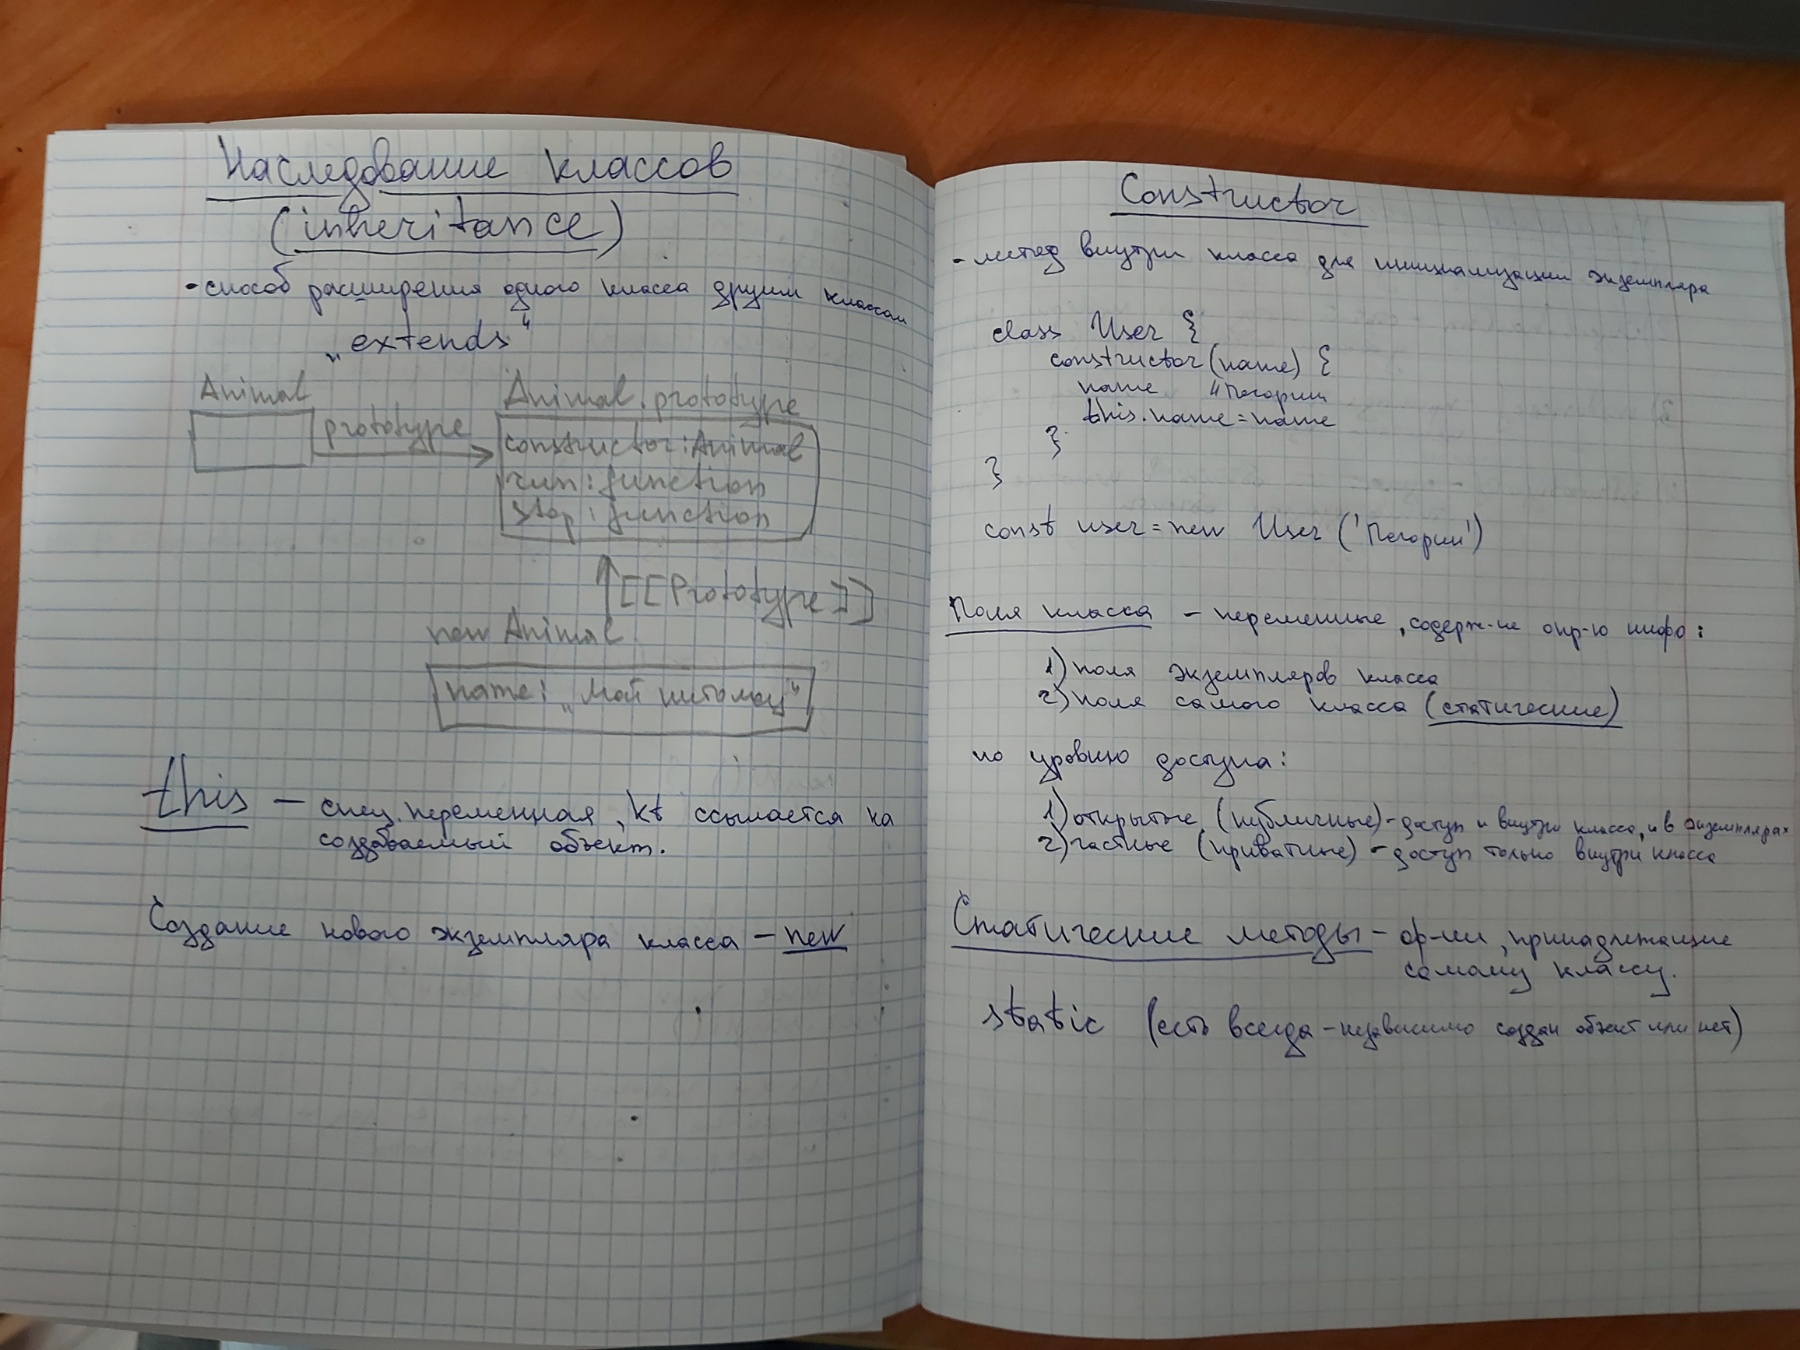 Наследование классов
(inheritance)
- способ расширения одного класса другим классом
„extends"
Animal
prototype
Animal.prototype
constructor: Animal
run: function
stop: function
[[Prototype]]
new Animal
name: „Мой питомец"
this – спец. переменная, kt ссылается на
создаваемый объект.
Создание нового экземпляра класса – new
Constructor
- метод внутри класса для инициализации экземпляра
class User {
constructor (name) {
name
this.name = name
}
}
const user = new User ('Пегорий')
Поля класса – переменные, содерж-ие опр-ю инфо:
1) поля экземпляров класса
2) поля самого класса (статические)
по уровню доступа:
1) открытые (публичные) - доступ и внутри класса, и в экземплярах
2) частные (приватные) - доступ только внутри класса
Статические методы – ф-ии, принадлежащие
самому классу.
static (есть всегда – независимо создан объект или нет)